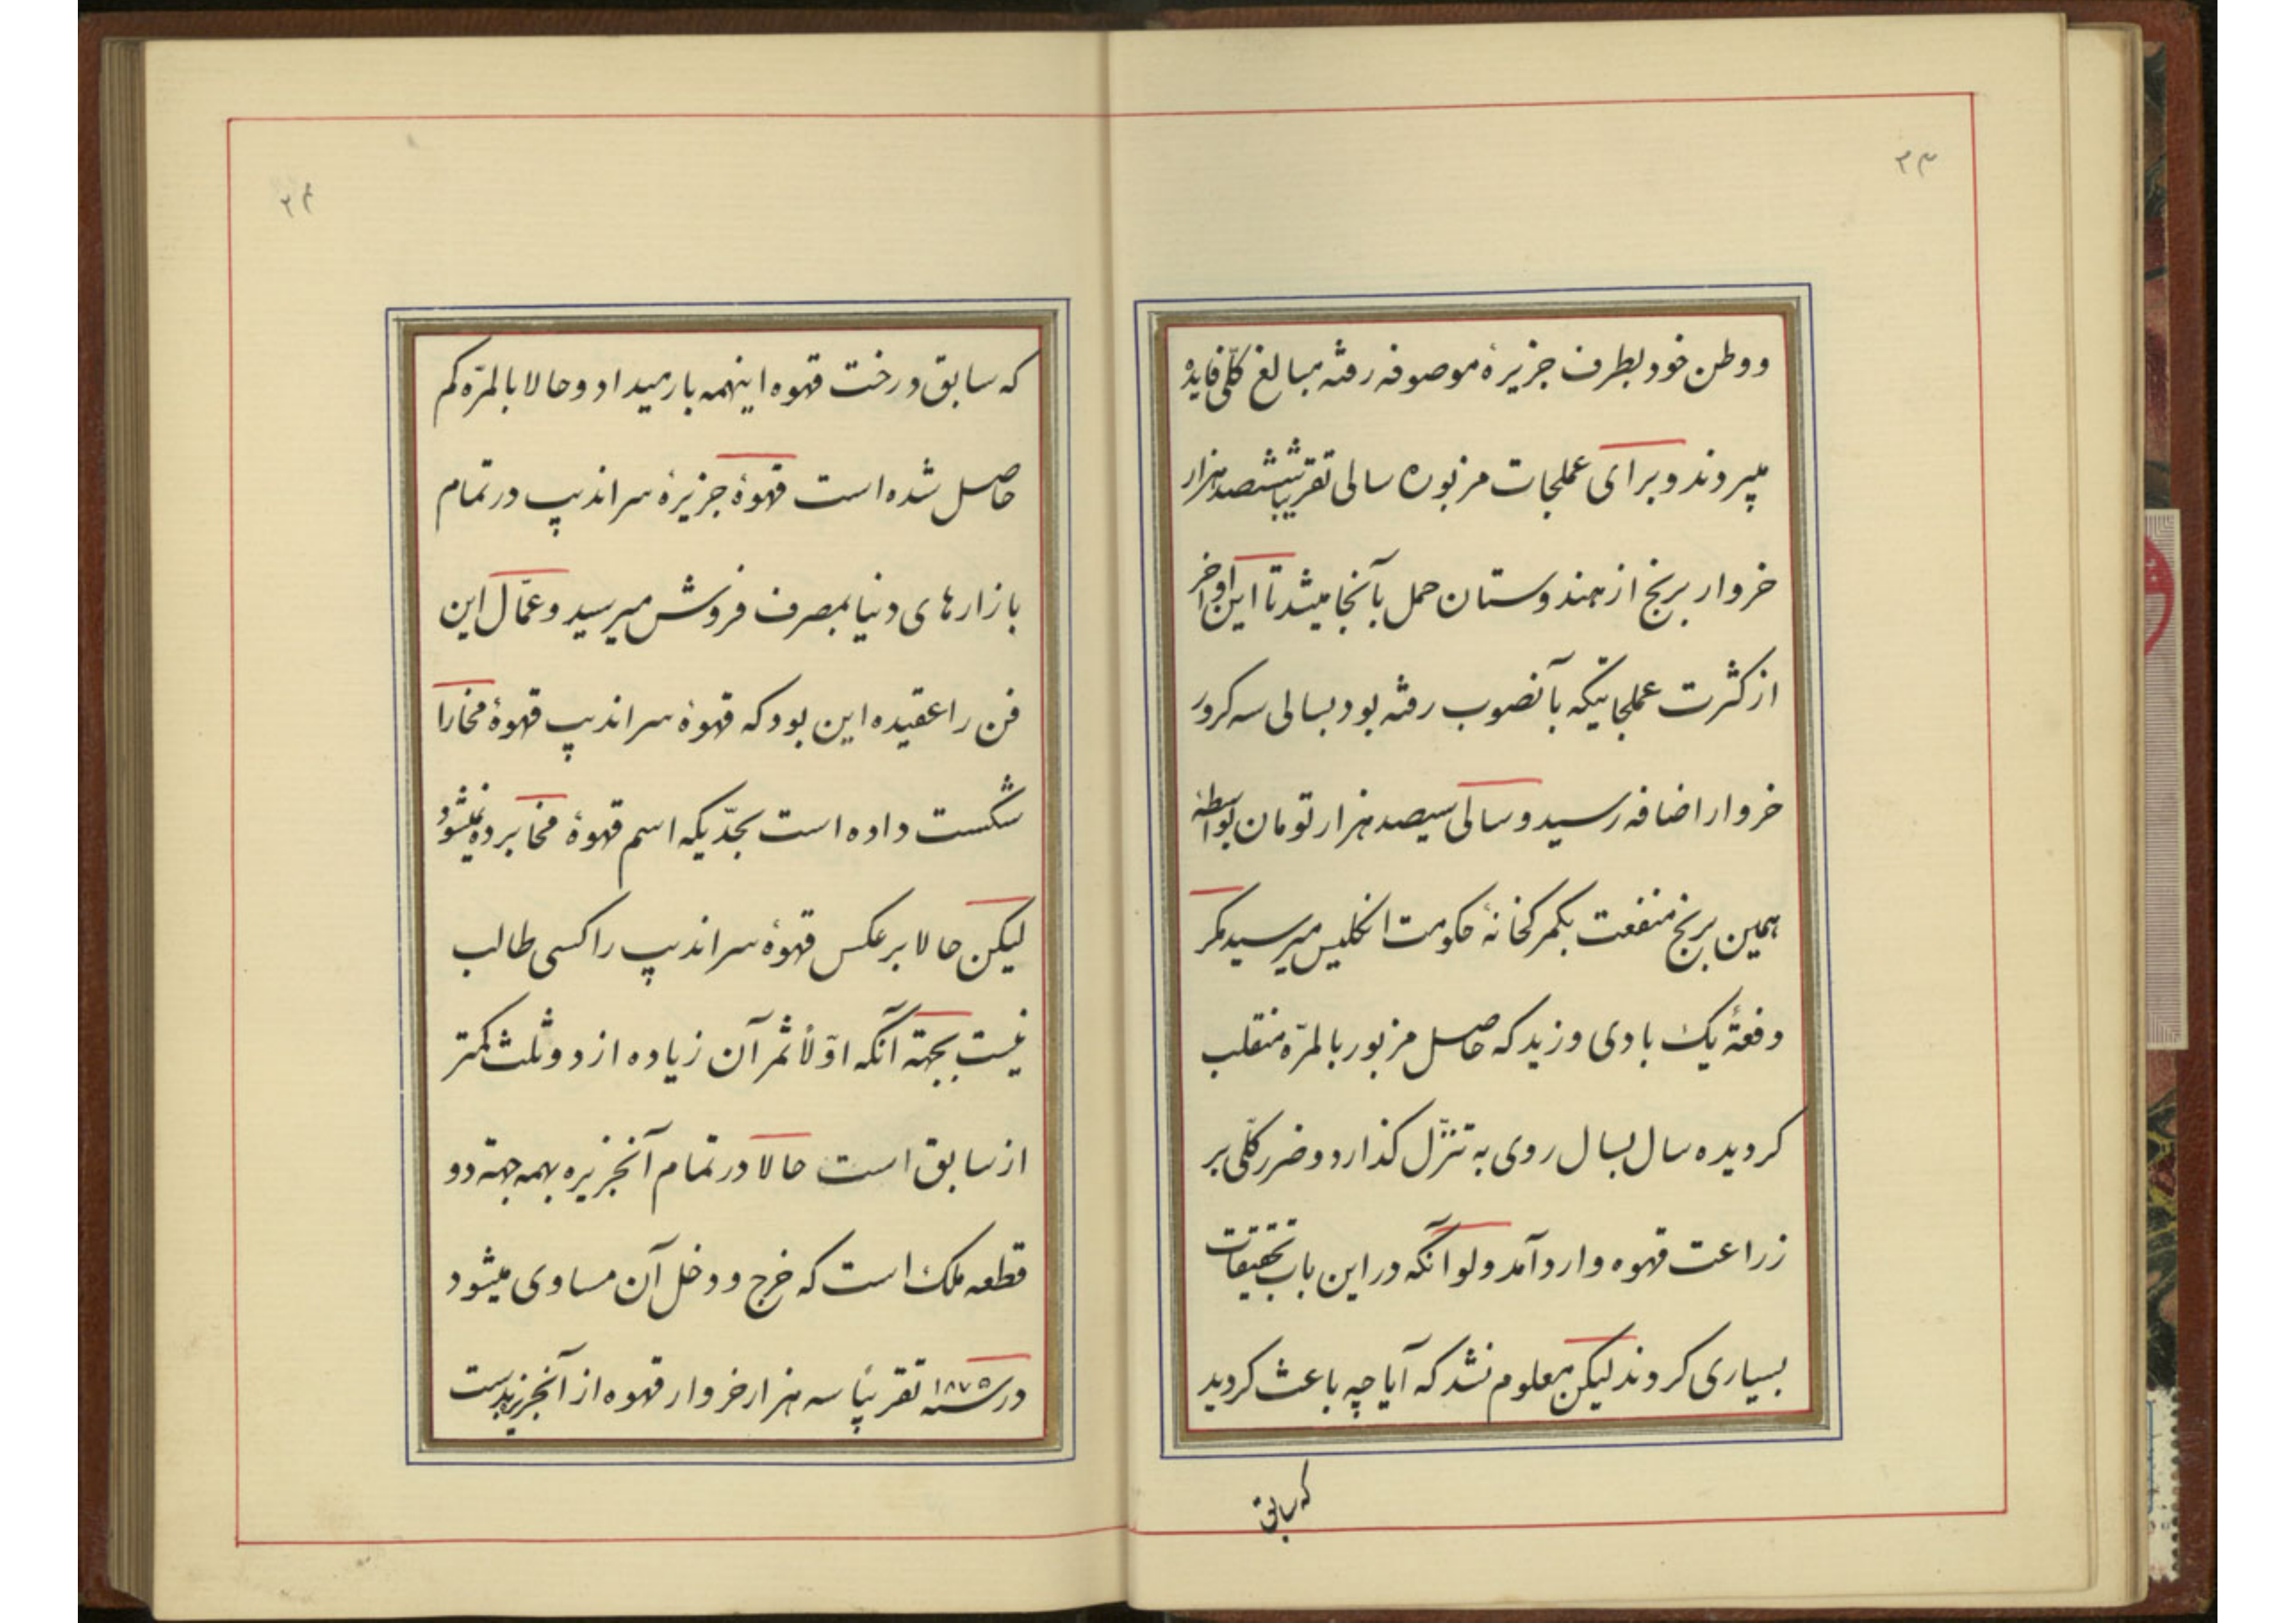 ۲۳
و وطن خود بطرف جزیرهٔ موصوفه رفته مبالغ کلّی فایده
میبردند و برای عملجات مزبوره سالی تقریباً ششصد هزار
خروار برنج از هندوستان حمل بآنجا میشد تا این اواخر
از کثرت عملجاتیکه بآنصوب رفته بود بسالی سه کرور
خروار اضافه رسید و سالی سیصد هزار تومان بواسطهٔ
همین برنج منفعت بگمرکخانهٔ حکومت انکلیس میرسید مکر
دفعةً یک بادی وزید که حاصل مزبور بالمرّه منقلب
کردیده سال بسال روی به تنزّل کذارد و ضرر کلّی بر
زراعت قهوه وارد آمد ولو آنکه در این باب تحقیقات
بسیاری کردند لیکن معلوم نشد که آیا چه باعث کردید
که سابق
۲۴
که سابق درخت قهوه اینهمه بار میداد و حالا بالمرّه کم
حاصل شده است قهوهٔ جزیرهٔ سراندیپ در تمام
بازارهای دنیا بمصرف فروش میرسید و عمّال این
فن را عقیده این بود که قهوهٔ سراندیپ قهوهٔ مخا را
شکست داده است بحدّیکه اسم قهوهٔ مخا برده نمیشود
لیکن حالا برعکس قهوهٔ سراندیپ را کسی طالب
نیست بجهة آنکه اوّلاً ثمر آن زیاده از دو ثلث کمتر
از سابق است حالا در تمام آنجزیره بهمه جهة دو
قطعه ملک است که خرج و دخل آن مساوی میشود
در سنه ۱۸۷۵ تقریباً سه هزار خروار قهوه از آنجزیره بدست